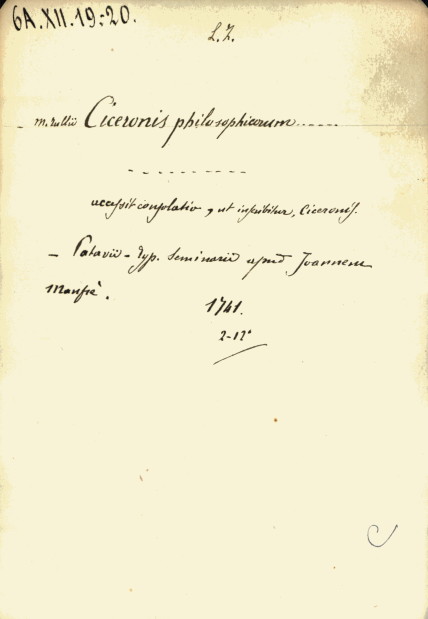 6A.XII.19-20.
L.Z.
- M. Tullii Ciceronis philosophicorum......
- - - - - - - - - -
accessit consolatio, ut inscribitur, Ciceronis.
- Patavii - Typ. Seminarii apud Joannem
Manfrè.
1741.
2-12°
C